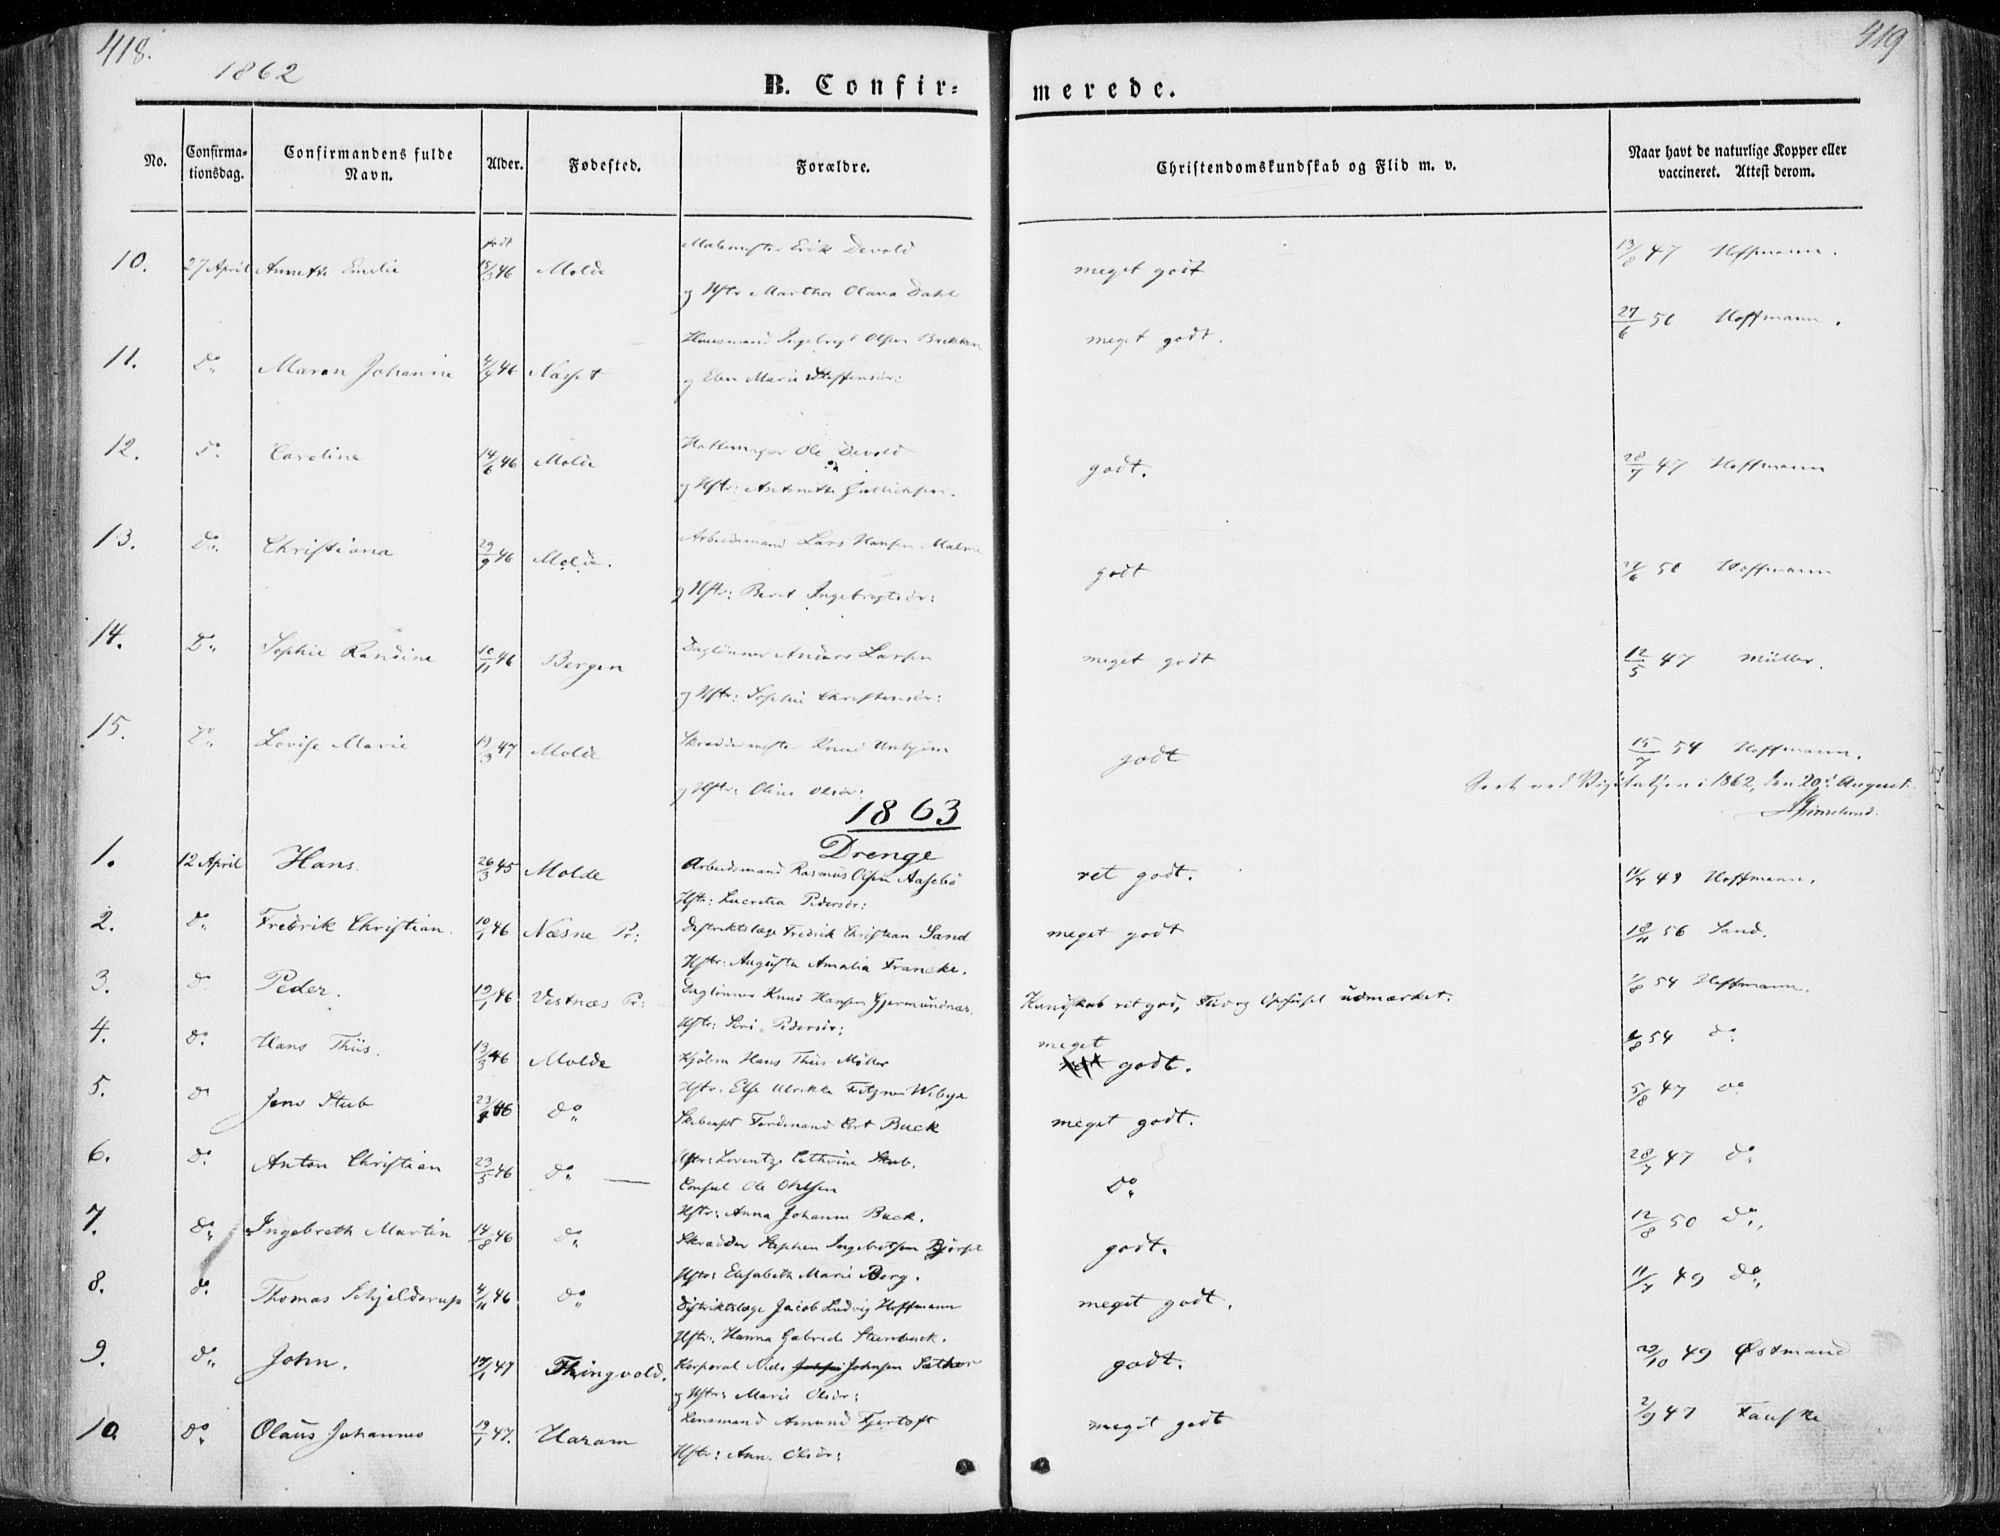 418.
419
1862
B. Confir- merede.
No. Confirma-tionsdag. Confirmandens fulde Navn. Alder. Fødested. Forældre. Christendomskundskab og Flid m. v. Naar havt de naturlige Kopper eller vaccineret. Attest derom.
født Erik Devold 13/8 47 Hoffmann.
10. 27 April Annette Emilie 15/3 46 Molde meget godt
og Hstr Martha Olava Dahl
27/6 50 Hoffmann.
Huusmand Ingebrigt Olsen meget godt.
11. Do. Maren Johanne 4/9 46 Næsset
og Elen Marie Steffensdr:
12. Do. Caroline 14/6 46 Molde Hattemager Ole Devold godt. 28/7 47 Hoffmann
og Hstr: Antonette
13. Do. Christiana 29/9 46 Molde. Arbeidsmand Lars Hansen Malme godt 50 Hoffmann
og Hstr: Beret Ingebrigtsdr:
14. Do. Sophie Randine 10/11 46 Bergen Daglønner Anders Larsen meget godt 12/5 47 Müller.
og Hstr: Sophie Christensdr:
15. Do. Lovise Marie 19/3 47 Molde Skræddermester Knud godt 15/7 54 Hoffmann.
og Hstr: Oline Olsdr:
Seet ved Visitatsen i 1862, den 20de August.
1863
Drenge
1. 12 April Hans. 26/3 45 Molde Arbeidsmand Rasmus Olsen Aasebø ret godt. 11/7 49 Hoffmann.
Hstr: Lucretia Pedersdr:
2. Do. Fredrik Christian. 10/1 46 Næsne Pr: Distriktslæge Fredrik Christian Sand meget godt 18/11 56 Sand.
Hstr: Augusta Amalia Francke.
3. Do Peder. 19/1 46 Vestnæs Pr: Daglønner Knud Hansen Gjermundnæs Kundskab ret god, Flid og Opførsel udmærket. 1/8 54 Hoffmann.
Hstr: Siri Pedersdr:
4. Do. Hans Thiis. 13/3 46 Molde Kjøbm Hans Thiis Møller meget godt. 1/8 54 Do.
Hstr. Else Ulrikke Fitzner Wibye
5. Do Jens Stub 23/4 46 Do. Skibcapt Ferdinand Cort Buck meget godt. 5/8 47 Do
Hstr: Lorentze Cathrine Stub.
6. Do. Anton Christian 23/5 46 Do. Consul Ole Ohlsen Do. 28/7 47 Do.
Hstr: Anna Johanne Buck.
7. Do. Ingebreth Martin 14/8 46 Do. Skrædder Stephen Ingebretsen godt. 12/8 50 Do.
Hstr: Elisabeth Marie Berg.
8. Do. Thomas Schjelderup 4/11 46 Do. Distriktslæge Jacob Ludvig Hoffmann meget godt. 11/7 49 Do.
Hstr: Hanna Gabriele Steenbuck.
9. Do. John. 17/1 47 Thingvold. Korporal Nels Johnsen Sather godt. 29/10 49 Østmand
og Hstr: Marie Olsdr:
10 Do. Olaus Johannes 19/1 47. Haram Lensmand Amund Fjertoft meget godt 2/9 47 Fauske
Hstr: Ann. Olsdr: